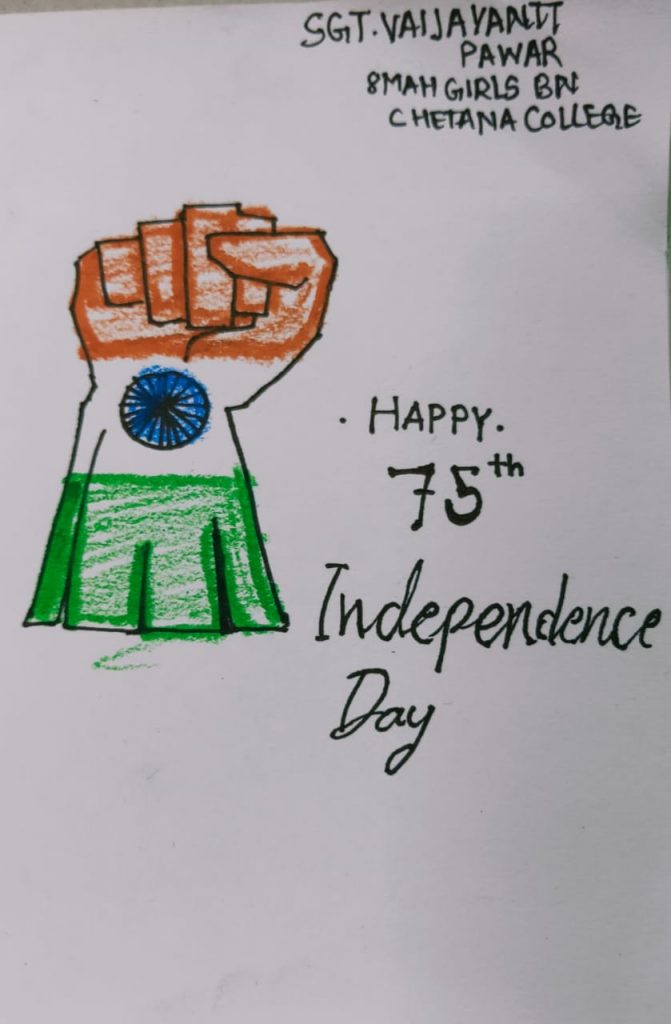 SGT. VAIJAYANTI
PAWAR
8 MAH GIRLS BN
CHETANA COLLEGE
. HAPPY.
75th
Independence
Day